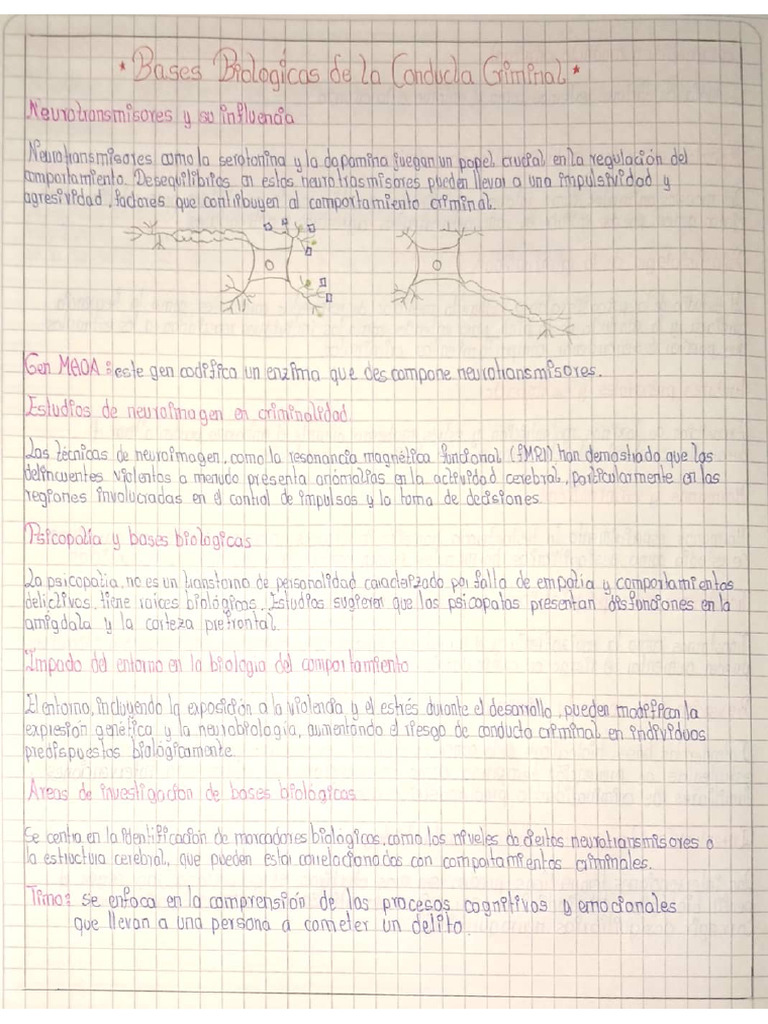 * Bases Biologicas de la Conducta Criminal *
Neurotransmisores y su influencia
Neurotransmisores como la serotonina y la dopamina juegan un papel crucial en la regulación del
comportamiento. Desequilibrios en estos neurotrasmisores pueden llevar a una impulsividad y
agresividad, factores que contribuyen al comportamiento criminal.
Gen MAOA: este gen codifica un enzima que descompone neurotransmisores.
Estudios de neuroimagen en criminalidad
Las técnicas de neuroimagen, como la resonancia magnética funcional (fMRI) han demostrado que los
delincuentes violentos a menudo presenta anomalías en la actividad cerebral, particularmente en las
regiones involucradas en el control de impulsos y la toma de decisiones.
Psicopatía y bases biologicas
La psicopatia, no es un transtorno de personalidad caracterizado por falta de empatia y comportamientos
delictivos, tiene raices biológicas. Estudios sugieren que los psicopatas presentan disfunciones en la
amígdala y la corteza prefrontal.
Impacto del entorno en la biologia del comportamiento
El entorno, incluyendo la exposición a la violencia y el estrés durante el desarrollo, pueden modifican la
expresión genética y la neurobiología, aumentando el riesgo de conducta criminal en individuos
predispuestos biológicamente.
Areas de investigacion de bases biológicas
Se centra en la identificación de marcadores biologicos, como los niveles de ciertos neurotransmisores o
la estructura cerebral, que pueden estar correlacionados con comportamientos criminales.
Timo: se enfoca en la comprensión de los procesos cognitivos y emocionales
que llevan a una persona a cometer un delito.